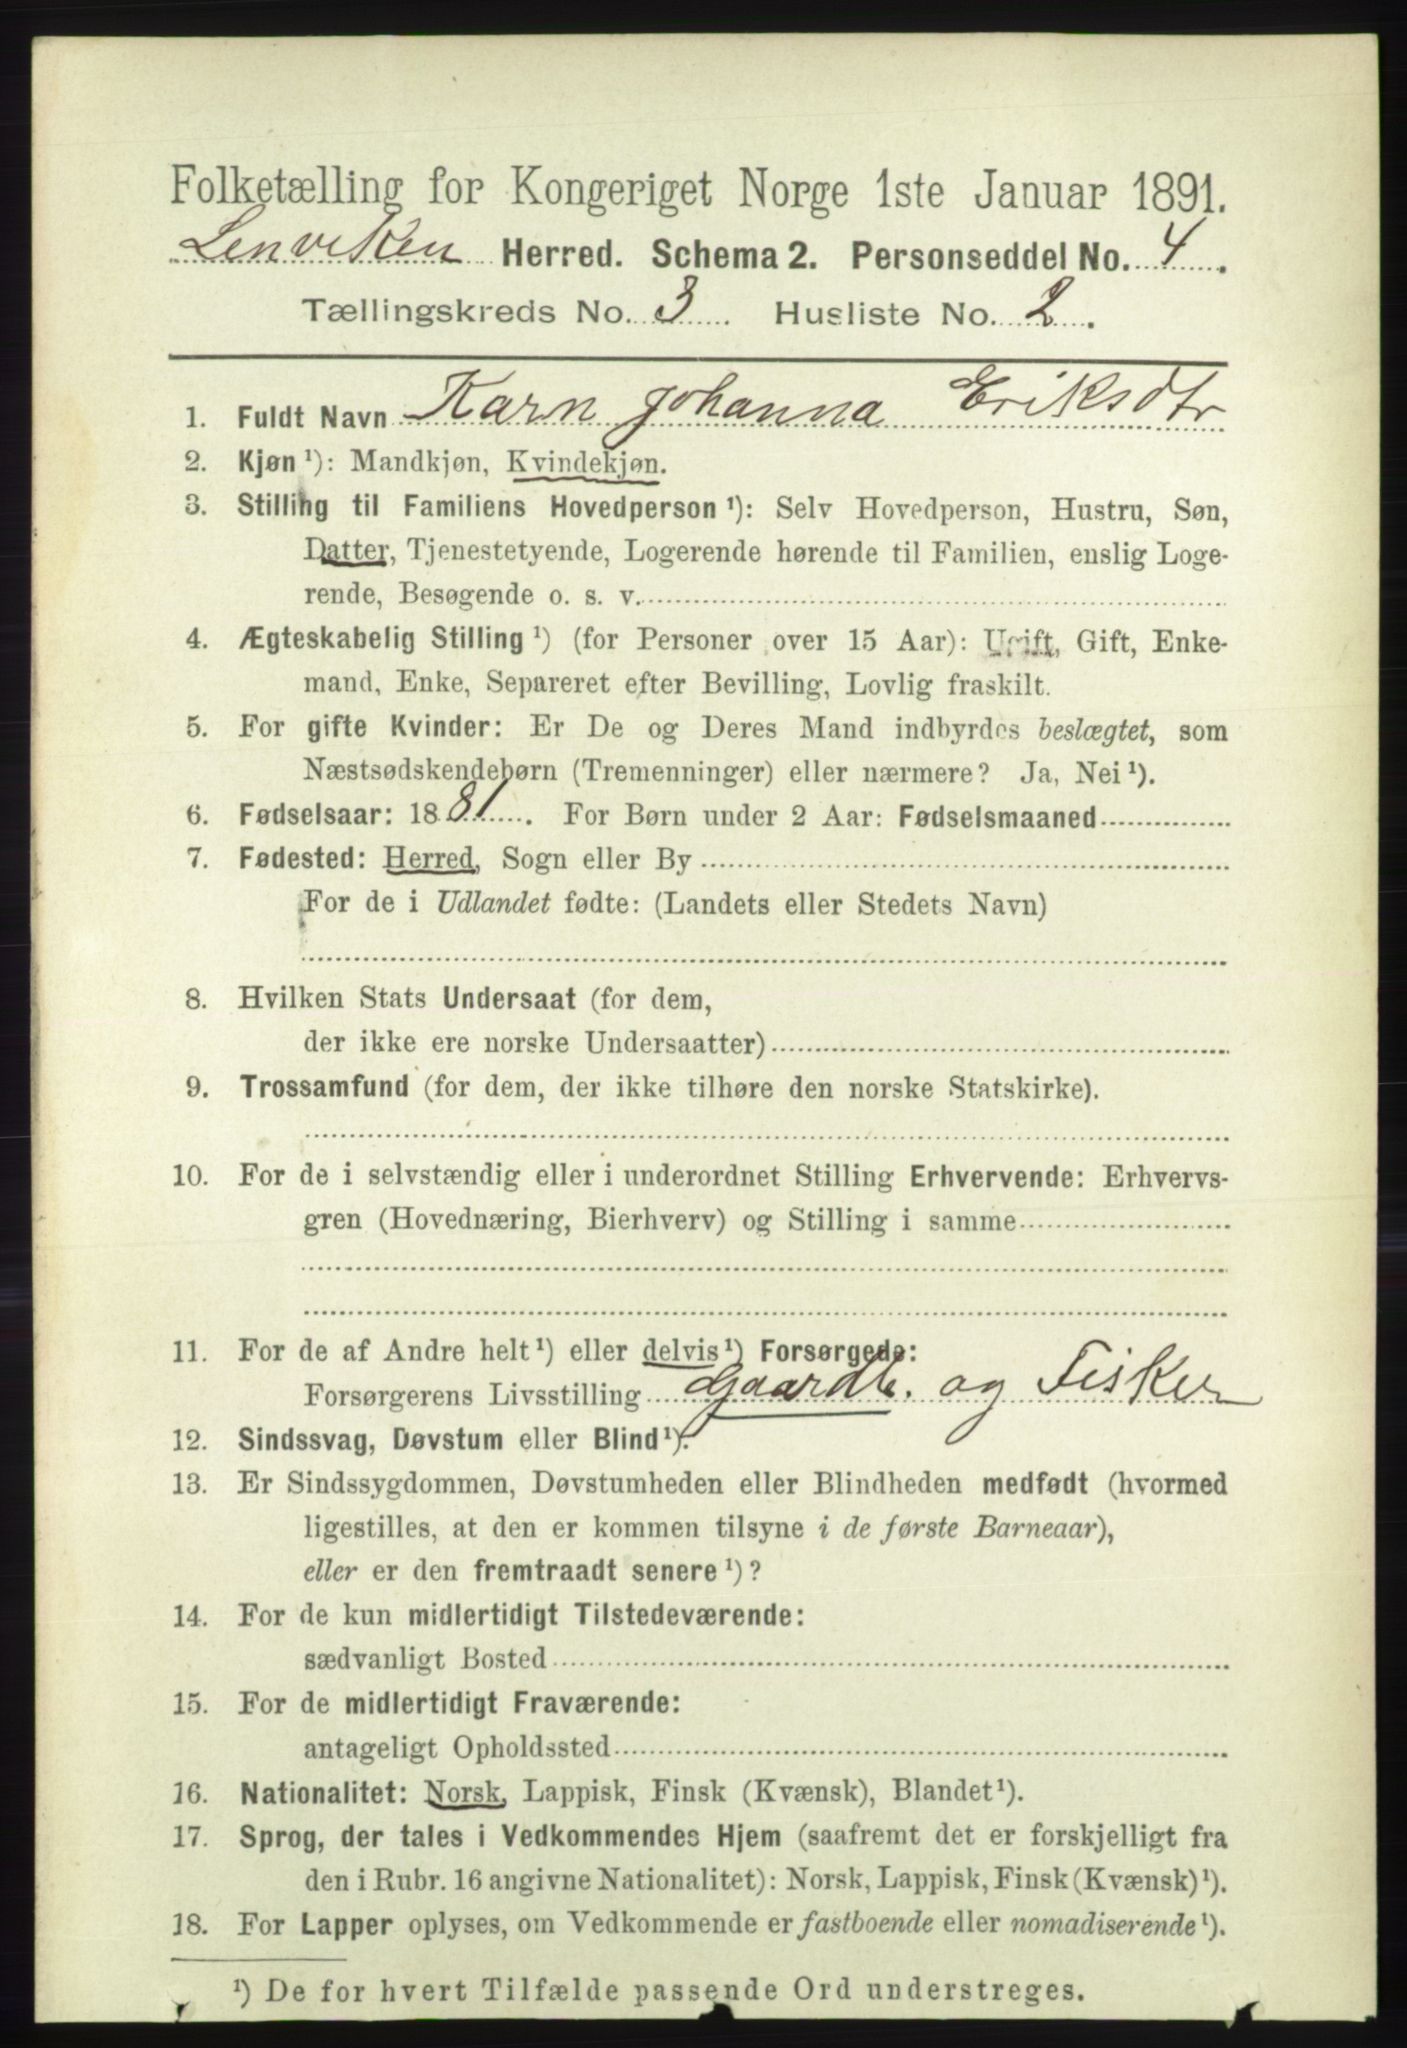 Folketælling for Kongeriget Norge 1ste Januar 1891.
Lenviken Herred. Schema 2. Personseddel No. 4.
Tællingskreds No. 3. Husliste No. 2.
1. Fuldt Navn Karn Johanna Eriksdtr
2. Kjøn ¹): Mandkjøn, Kvindekjøn.
3. Stilling til Familiens Hovedperson ¹): Selv Hovedperson, Hustru, Søn,
Datter, Tjenestetyende, Logerende hørende til Familien, enslig Loge-
rende, Besøgende o. s. v.
4. Ægteskabelig Stilling ¹) (for Personer over 15 Aar): Ugift, Gift, Enke-
mand, Enke, Separeret efter Bevilling, Lovlig fraskilt.
5. For gifte Kvinder: Er De og Deres Mand indbyrdes beslægtet, som
Næstsødskendebørn (Tremenninger) eller nærmere? Ja, Nei ¹).
6. Fødselsaar: 1881. For Børn under 2 Aar: Fødselsmaaned
7. Fødested: Herred, Sogn eller By
For de i Udlandet fødte: (Landets eller Stedets Navn)
8. Hvilken Stats Undersaat (for dem,
der ikke ere norske Undersaatter)
9. Trossamfund (for dem, der ikke tilhøre den norske Statskirke).
10. For de i selvstændig eller i underordnet Stilling Erhvervende: Erhvervs-
gren (Hovednæring, Bierhverv) og Stilling i samme
11. For de af Andre helt ¹) eller delvis ¹) Forsørgede:
Forsørgerens Livsstilling Gaardb. og Fisker
12. Sindssvag, Døvstum eller Blind ¹).
13. Er Sindssygdommen, Døvstumheden eller Blindheden medfødt (hvormed
ligestilles, at den er kommen tilsyne i de første Barneaar),
eller er den fremtraadt senere ¹)?
14. For de kun midlertidigt Tilstedeværende:
sædvanligt Bosted
15. For de midlertidigt Fraværende:
antageligt Opholdssted
16. Nationalitet: Norsk, Lappisk, Finsk (Kvænsk), Blandet ¹).
17. Sprog, der tales i Vedkommendes Hjem (saafremt det er forskjelligt fra
den i Rubr. 16 angivne Nationalitet): Norsk, Lappisk, Finsk (Kvænsk) ¹).
18. For Lapper oplyses, om Vedkommende er fastboende eller nomadiserende ¹).
¹) De for hvert Tilfælde passende Ord understreges.